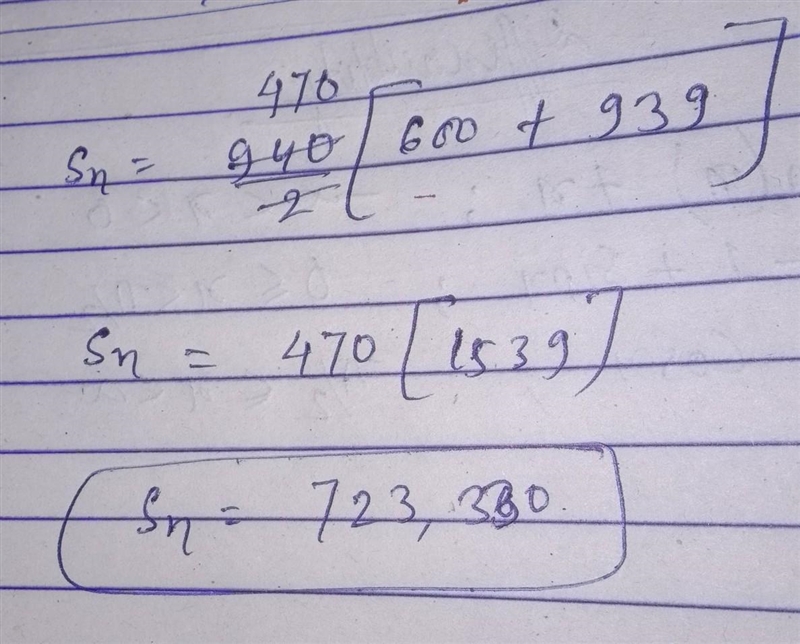 470
Sn = 940/2 [600 + 939]
Sn = 470 [1539]
Sn = 723,330